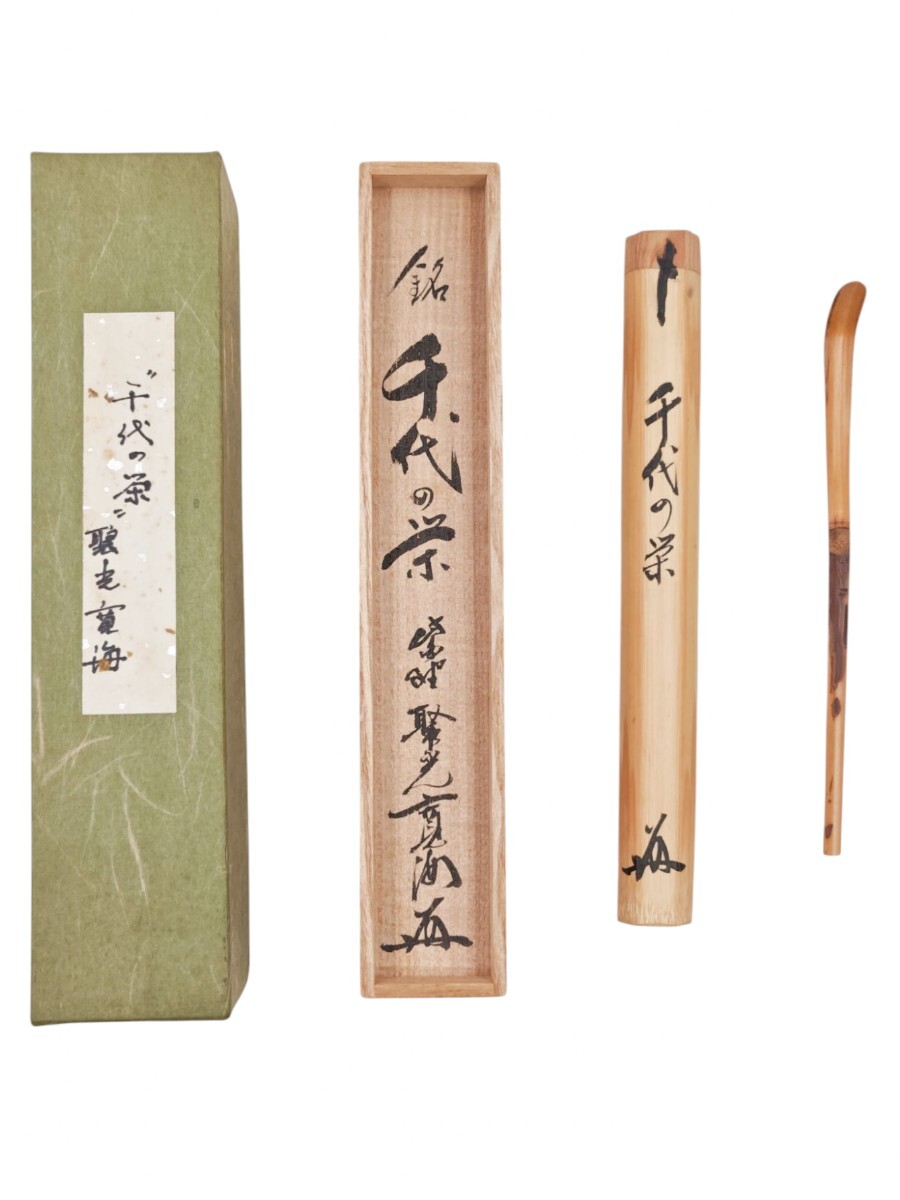 〝千代の栄〟
聚光寛海
銘
千代の栄
紫野 聚光寛海
千代の栄